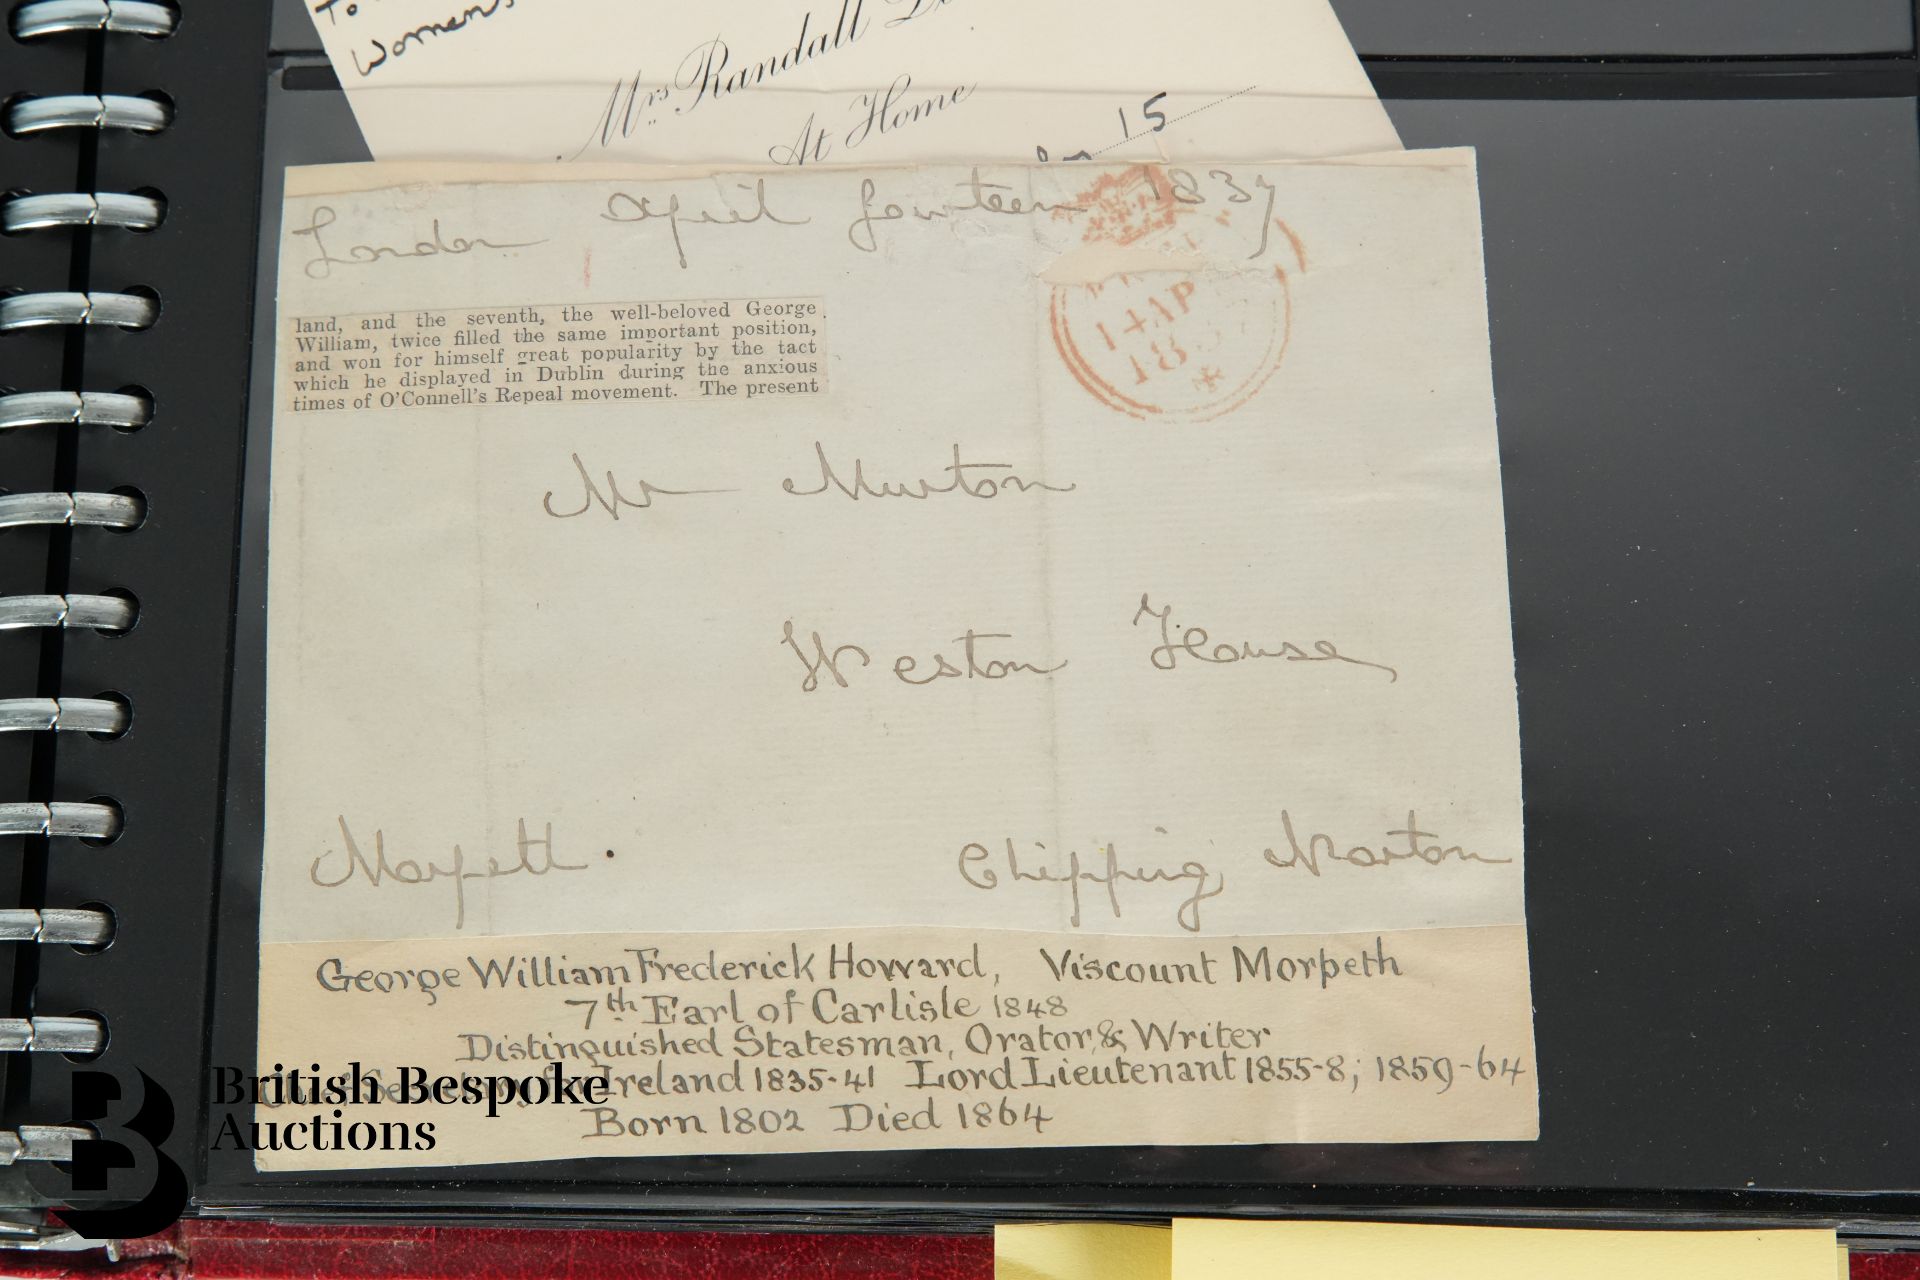 To
Women's
Mrs Randall
At Home
15
London April fourteen 1837
14 AP
18
land, and the seventh, the well-beloved George
William, twice filled the same important position,
and won for himself great popularity by the tact
which he displayed in Dublin during the anxious
times of O'Connell's Repeal movement. The present
Mr Murton
Weston House
Chipping Norton
Morpeth.
George William Frederick Howard, Viscount Morpeth
7th Earl of Carlisle 1848
Distinguished Statesman, Orator, & Writer
Secretary for Ireland 1835-41 Lord Lieutenant 1855-8; 1859-64
Born 1802 Died 1864
British Bespoke
Auctions